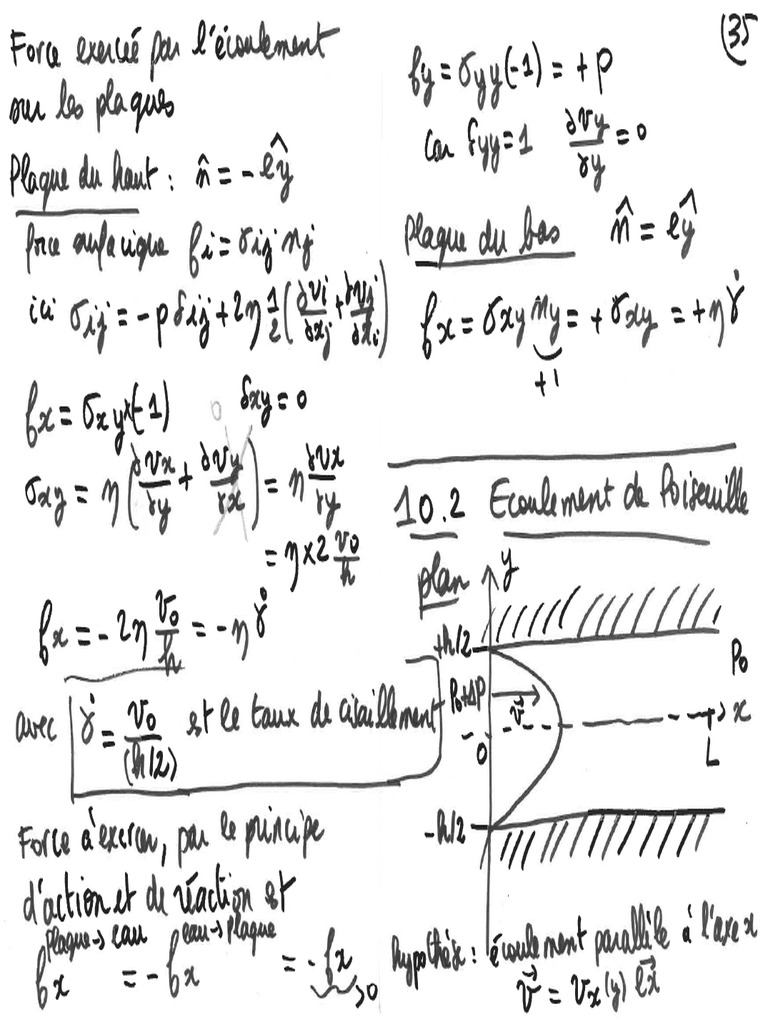 (35
Force exercée par l'écoulement
sur les plaques
Plaque du haut : n̂ = - êy
force surfacique fi = σij nj
ici σij = -p δij + 2η 1/2 (∂vi/∂xj + ∂vj/∂xi)
fx = σxy × (-1) δxy = 0
σxy = η (∂vx/∂y + ∂vy/∂x) = η ∂vx/∂y
0
= η × 2 v0/h
fx = - 2η v0/h = - η γ̇
avec γ̇ = v0/(h/2) est le taux de cisaillement
Force à exercer, par le principe
d'action et de réaction est
fx plaque→eau = - fx eau→plaque = - fx
>0
fy = σyy (-1) = + p
car δyy = 1 ∂vy/∂y = 0
Plaque du bas n̂ = êy
fx = σxy ny = + σxy = + η γ̇
+1
10.2 Ecoulement de Poiseuille
plan
y
+h/2
P0
P0+ΔP
v⃗
x
0
L
-h/2
hypothèse : écoulement parallèle à l'axe x
v⃗ = vx(y) e⃗x